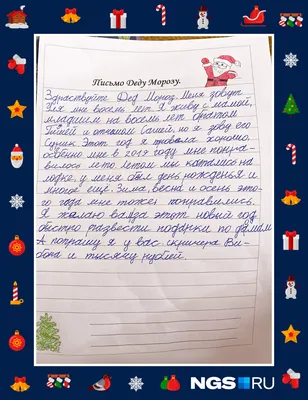 Письмо Деду Морозу.
Здраствуйте Дед Мороз. Меня зовут
мне восемь лет. Я живу с мамой,
младшим на восемь лет братом
и отчимом Сашей, но я зову его
Этот год я провела хорошо.
особенно мне в 2019 году мне понра-
вилось лето летом мы катались на
лодке, у меня был день нождения и
многое ещё. Зима, весна и осень это-
го года мне тоже понравились.
Я желаю вам в этот новый год
быстро развести подарки по домам
А попрошу я у вас скринера Ви-
бона и тысячу рублей.
NGS RU